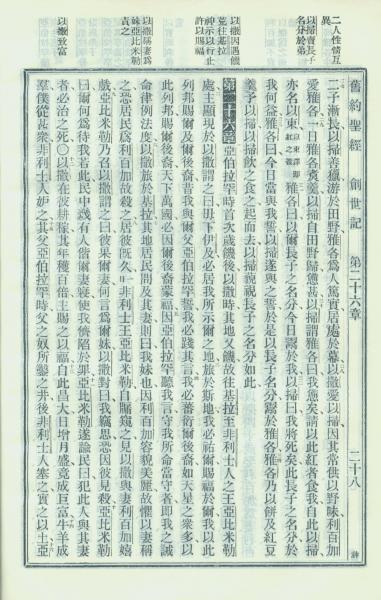 舊約聖經 創世記 第二十六章 二十八
二人性情互異
以掃賣長子名分於弟
以撒因遇饑荒往基拉
神示以行止許以賜福
以撒稱妻爲妹亞比米勒責之
以撒致富
二子漸長以掃善獵游於田野雅各爲人篤實居處於幕以撒愛以掃因其常供以野味利百加
愛雅各一日雅各煑羹以掃自田野歸憊甚以掃謂雅各曰我憊矣請以此紅者食我自此以掃
亦名以東雅各曰以爾長子之名分今日鬻於我以掃曰我將死矣此長子之名分於
我何益雅各曰今日當與我誓以掃遂與之誓於是以長子名分鬻於雅各雅各乃以餅及紅豆
羹予以掃以掃飲之食之起而去以掃藐視長子名分如此
第二十六章 亞伯拉罕時首次歲饑後以撒時其地又饑故往基拉至非利士人之王亞比米勒
處主顯現於以撒謂之曰毋下伊及必居我所示爾之地旅於斯地我必祐爾賜福於爾我以此
列邦賜爾及爾後裔昔我與爾父亞伯拉罕誓我必踐其言我必蕃衍爾後裔如天星之衆多以
此列邦賜爾後裔天下萬國必因爾後裔蒙福因亞伯拉罕聽我言守我所命當守者即我之誡
命律例法度以撒旅於基拉其地居民問及其妻則曰我妹也因利百加容貌美麗故懼以妻稱
之恐居民爲利百加故殺之居彼旣久非利士王亞比米勒自牖窺之見以撒與妻利百加嬉
戲亞比米勒乃召以撒謂之曰彼果爾妻何言爲爾妹以撒對曰我竊思恐因彼見殺亞比米勒
曰爾何爲待我若此民中幾有人偕爾妻寢使我儕陷於罪亞比米勒遂諭民曰犯此人與其妻
者必治之死〇以撒在彼耕稼其年穫百倍主賜之以福自此昌大日增月盛竟成巨富牛羊成
羣僕從甚衆非利士人妒之其父亞伯拉罕時父之奴所鑿之井後非利士人塞之實之以土亞